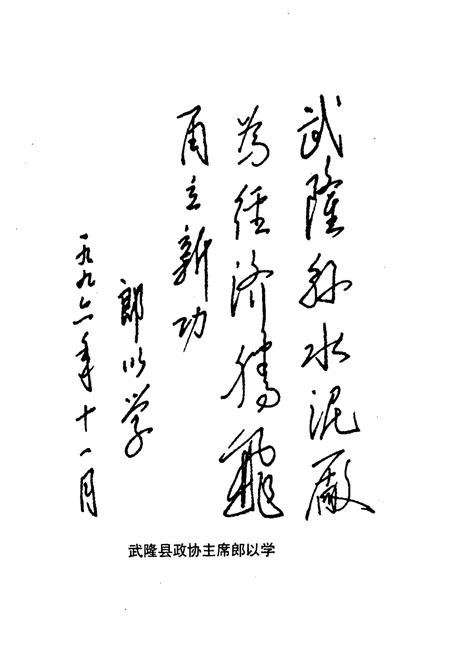 武隆縣水泥廠
為经济腾飛
再立新功
郎以学
一九九六年十一月
武隆县政协主席郎以学